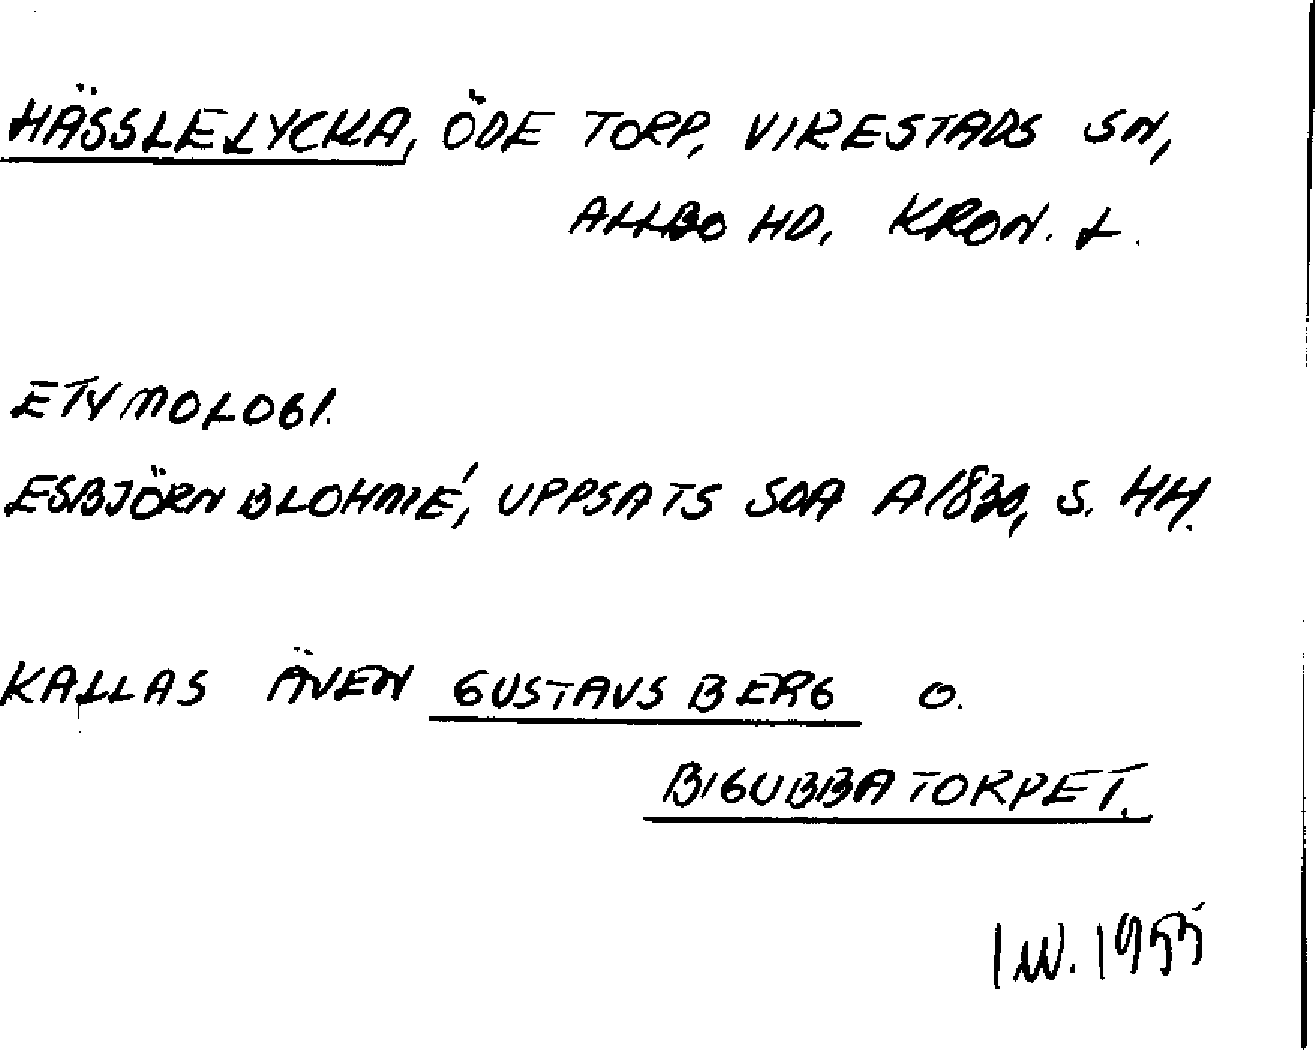 HÄSSLELYCKA, ÖDE TORP, VIRESTADS SN,
ALLBO HD, KRON. L.
ETYMOLOGI.
ESBJÖRN BLOHMÉ, UPPSATS SOA A1830, S. 44.
KALLAS ÄVEN GUSTAVSBERG O.
BIGUBBATORPET.
IW. 1955